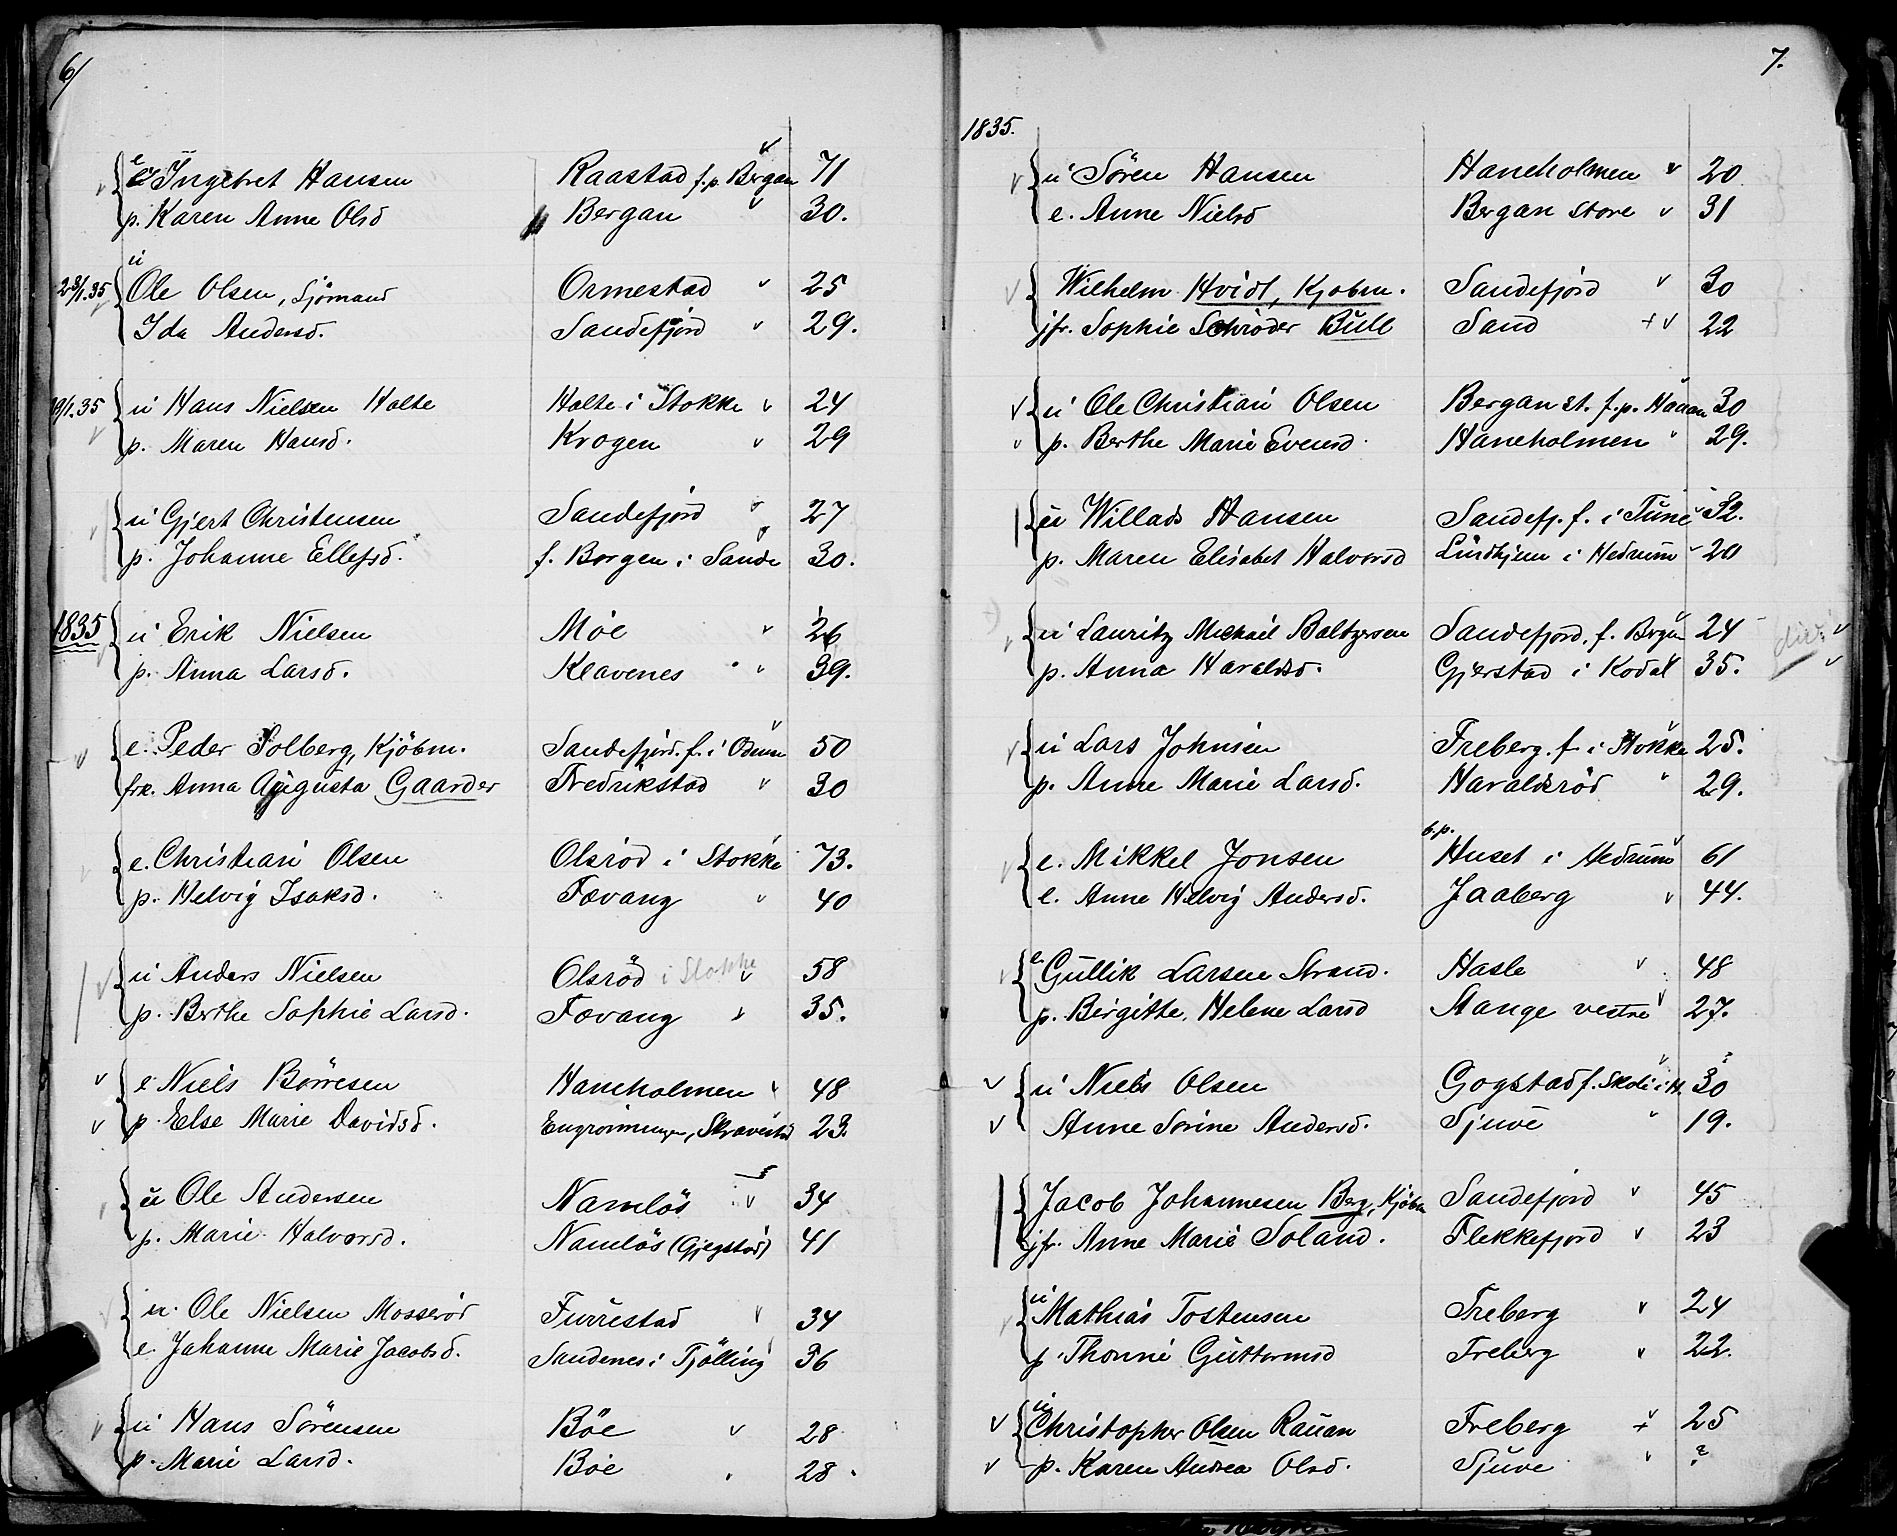 6/
e Ingebret Hansen Raastad f. p. Bergan v 71
p. Karen Anne Olsd Bergan v 30.
23/1.35 u Ole Olsen, Sjömand Ormestad v 25
Ida Andersd. Sandefjord v 29.
u Hans Nielsen Holte Holte i Stokke v 24
p. Maren Hansd. Krogen v 29
u Gjert Christensen Sandefjord 27
p. Johanne Ellefsd. f. Borgen i Sande 30.
1835 u Erik Nielsen Möe v 26
p. Anna Larsd. Klavenes v 39.
e. Peder Solberg, Kjöbm. Sandefjord. f. i 50
frk. Anna Augusta Gaarder Fredrikstad v 30
e. Christian Olsen Olsröd i Stokke 73.
p. Helvig Isaksd. Fævang v 40
u Anders Nielsen Olsröd i Stokke v 58
p. Berthe Sophie Larsd. Fævang v 35.
e Niels Börresen Haneholmen v 48
p. Else Marie Davidsd. 23.
u Ole Andersen Namlös v 34
p. Marie Halvorsd. Namlös (Gjegstad) 41
u. Ole Nielsen Mosseröd Furrestad v 34
e. Johanne Marie Jacobsd. Sandenes i Tjölling 36
u Hans Sörensen Böe v 28
p. Marie Larsd. Böe v 28.
7.
1835.
u Sören Hansen Haneholmen v 20
e. Anne Nielsd Bergan store v 31
Wilhelm Hvidt, Kjobm. Sandefjord v 30
jfr. Sophie Schröder Bull Sand + v 22
u Ole Christian Olsen Bergan st. f. p. Hauan 30
p. Berthe Marie Evensd. Haneholmen v 29.
u Willads Hansen Sandefj. f. i Tune 32.
p. Maren Elisabet Halvorsd Lindhjem i Hedrum v 20
u Lauritz Michael Baltzersen Sandefjord. f. 24
p. Anna Haraldsd. Gjerstad i Kodal 35.
u Lars Johnsen Freberg. f. i Stokke 25.
p. Anne Marie Larsd. Haraldsröd 29.
e. Mikkel Jonsen f. p. Huset i Hedrum 61
e. Anne Helvig Andersd. Jaaberg v 44.
e Gullik Larsen Strand. Hasle v 48
p. Birgitte Helene Larsd Stange vestre v 27.
u Niels Olsen Gogstad f. Skoli i H. 30
Anne Sorine Andersd. Sjuve 19.
Jacob Johannesen Berg, Kjöbm Sandefjord v 45
jfr. Anne Marie Soland. Flekkefjord v 23
u Mathias Tostensen Freberg v 24
p. Thonne Guttormsd Freberg v 22.
u Christopher Olsen Rauan Freberg + 25
p. Karen Andrea Olsd. Sjuve v ?